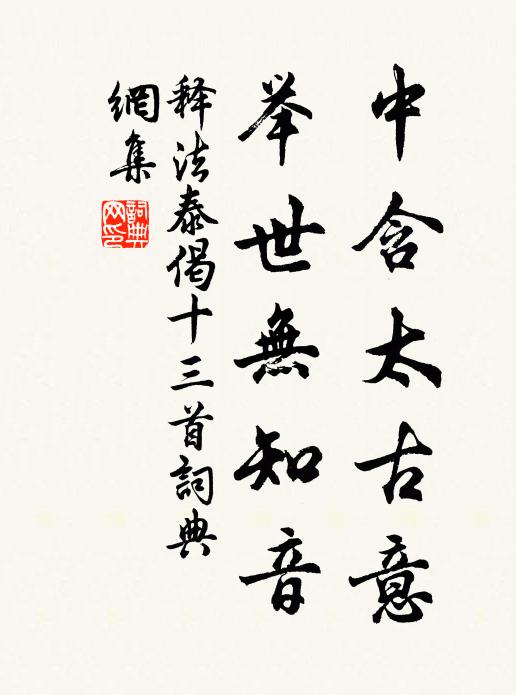 中含太古意
举世無知音
释法泰偈十三首詞典
網集
詞典网印